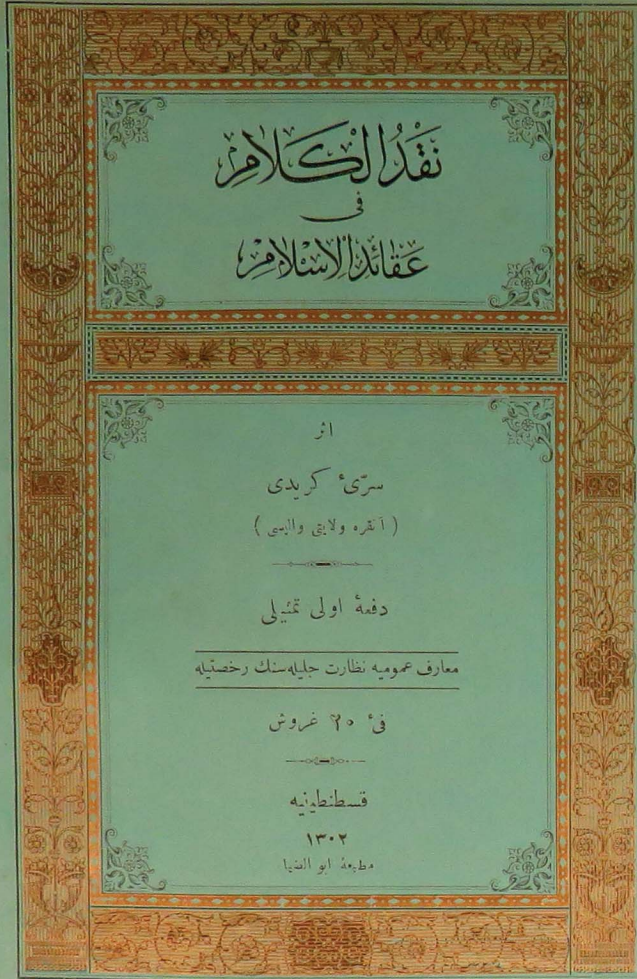 نَقْدُ الْكَلَامِ
فى
عَقَائِدِ الْاِسْلَامِ
اثر
سرّیٔ كریدی
( آنقره ولایتی والیسی )
دفعهٔ اولی تمثیلی
معارف عمومیه نظارت جلیله‌سنك رخصتیله
فیٔ ٢٠ غروش
قسطنطینیه
١٣٠٢
مطبعهٔ ابو الضیا